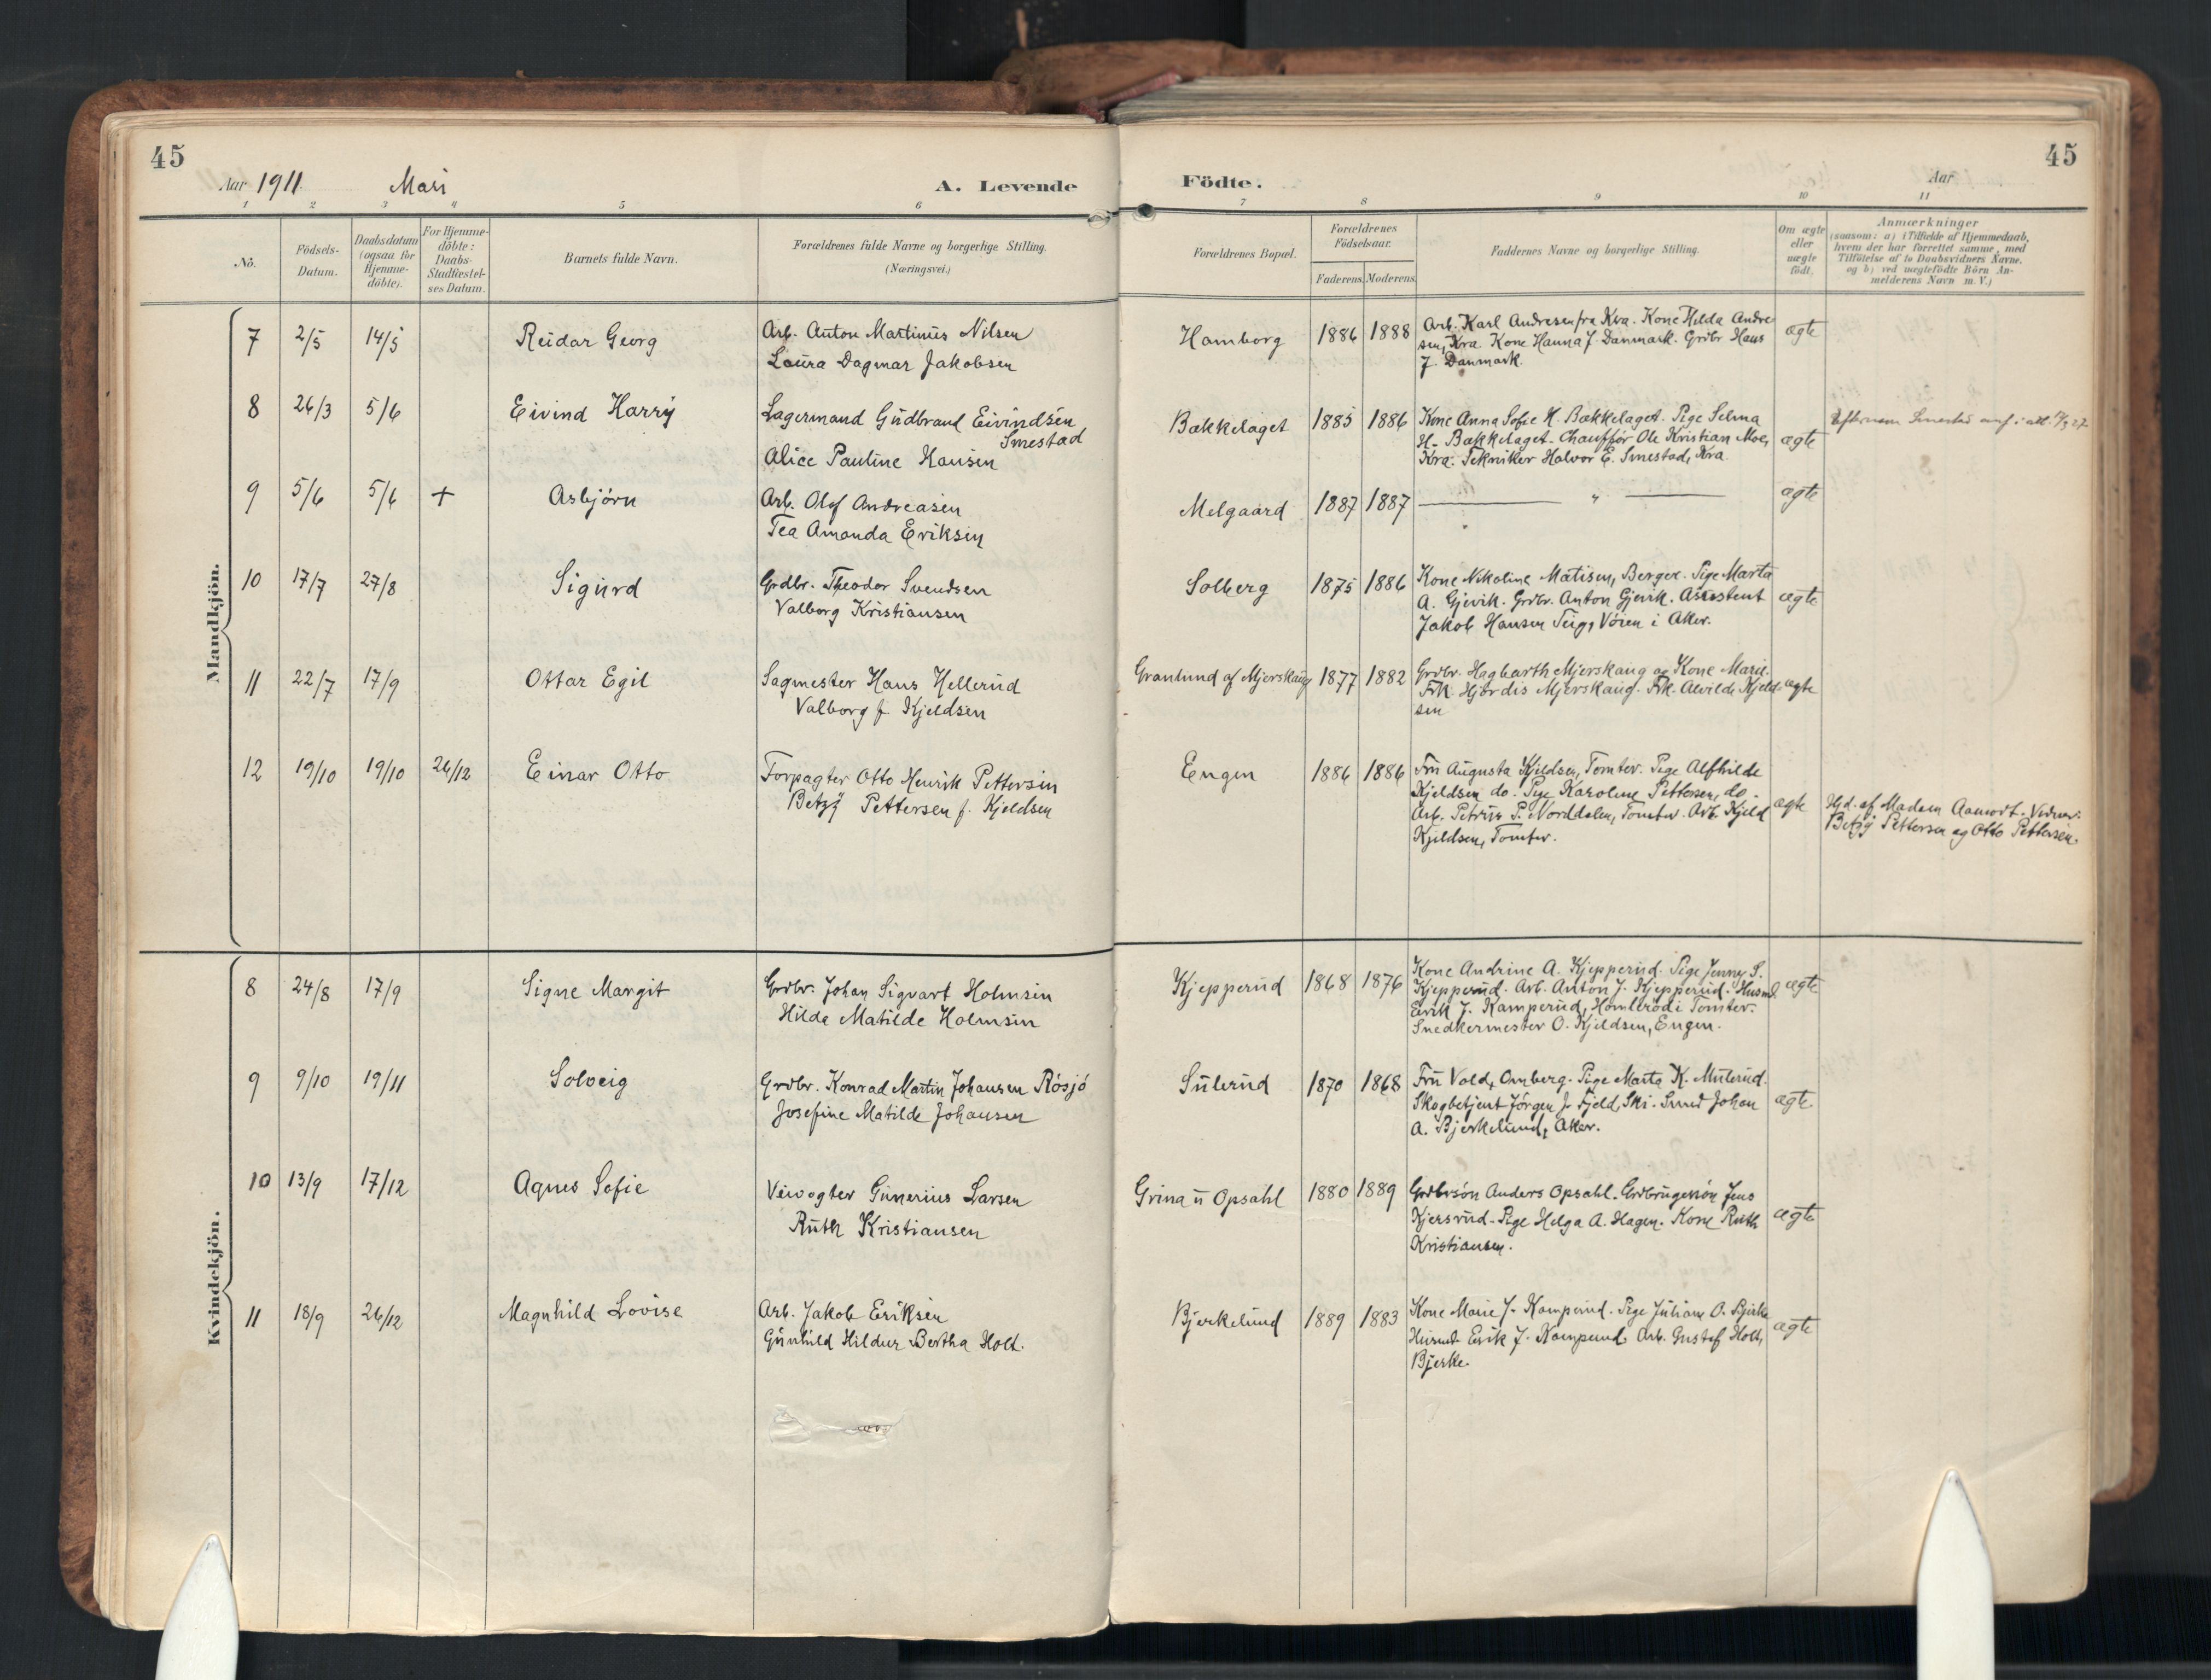 45
Aar 1911. Mari A. Levende
1 2 3 4 5 6
Nö.
Födsels-
Datum.
Daabsdatum
(ogsaa for
Hjemme-
döbte).
For Hjemme-
döbte:
Daabs-
Stadfæstel-
ses Datum.
Barnets fulde Navn.
Forældrenes fulde Navne og borgerlige Stilling.
(Næringsvei.)
Mandkjön.
7 2/5 14/5 Reidar Georg Arb. Anton Martinus Nilsen
Laura Dagmar Jakobsen
8 26/3 5/6 Eivind Harry Lagermand Gudbrand Eivindsen
Smestad
Alice Pauline Hansen
9 5/6 5/6 + Asbjörn Arb. Olof Andreasen
Tea Amanda Eriksen
10 17/7 27/8 Sigurd Grdbr. Theodor Svendsen
Valborg Kristiansen
11 22/7 17/9 Ottar Egil Sagmester Hans Hellerud
Valborg f. Kjeldsen
12 19/10 19/10 26/12 Einar Otto Forpagter Otto Henrik Pettersen
Betzy Pettersen f. Kjeldsen
Kvindekjön.
8 24/8 17/9 Signe Margit Grdbr. Johan Sigvart Holmsen
Hilda Matilde Holmsen
9 9/10 19/11 Solveig Grdbr. Konrad Martin Johansen Rösjö
Josefine Matilde Johansen
10 13/9 17/12 Agnes Sofie Veivogter Gunerius Larsen
Ruth Kristiansen
11 18/9 26/12 Magnhild Lovise Arb. Jakob Eriksen
Gunhild Hildur Bertha Holt.
45
Födte. Aar
7 8 9 10 11
Forældrenes Bopæl.
Forældrenes
Födselsaar.
Faderens. Moderens.
Faddernes Navne og borgerlige Stilling.
Om ægte
eller
uægte
födt.
Anmærkninger
(saasom: a) i Tilfælde af Hjemmedaab,
hvem der har forrettet samme, med
Tilföielse af to Daabsvidners Navne.
og b) ved uægtefödte Börn An-
melderens Navn m. V.)
Hamborg 1886 1888 Arb. Karl Andresen fra Kra. Kone Hilda Andre-
sen, Kra Kone Hanna J. Danmark. Grdbr Hans
J. Danmark.
ægte
Bækkelaget 1885 1886 Kone Anna Sofie H. Bækkelaget. Pige Selma
H. Bækkelaget. Chauffør Ole Kristian Moe,
Kra. Tekniker Halvor E. Smestad, Kra.
ægte
Efternavn Smestad
Melgaard 1887 1887 — " — ægte
Solberg 1875 1886 Kone Nikoline Matisen, Berger. Pige Marta
A. Gjevik. Grdbr. Anton Gjevik. Assistent
Jakob Hansen Teig, Vöien i Aker.
ægte
Granlund af Mjerskaug 1877 1882 Grdbr. Hagbarth Mjerskaug og Kone Marie.
Frk. Hjördis Mjerskaug. Frk. Alvilde Kjeld-
sen
ægte
Engen 1886 1886 Fru Augusta Kjeldsen, Tomter. Pige Alfhilde
Kjeldsen do. Pige Karoline Pettersen, do.
Arb. Petrus P. Norddalen, Tomter. Arb. Kjeld
Kjeldsen, Tomter.
ægte
Hjd. af Madam Aamodt. Vidner:
Betzy Pettersen og Otto Pettersen.
Kjepperud 1868 1876 Kone Andrine A. Kjepperud. Pige Jenny S.
Kjepperud. Arb. Anton J. Kjepperud. Husmd.
Eirik J. Kamperud, Homleröd i Tomter.
Snedkermester O. Kjeldsen, Engen.
ægte
Sulerud 1870 1868 Fru Vold, Omberg. Pige Marta K. Mulerud.
Skogbetjent Jörgen J. Fjeld, Ski. Smed Johan
A. Bjerkelund, Aker.
ægte
Grina u Opsahl 1880 1889 Grdbrsön Anders Opsahl. Grdbrugersön Jens
Kjersrud. Pige Helga A. Hagen. Kone Ruth
Kristiansen.
ægte
Bjerkelund 1889 1883 Kone Marie J. Kamperud. Pige Juliane O. Bjerke
Husmd. Eirik J. Kamperud. Arb. Gustaf Holt,
Bjerke.
ægte